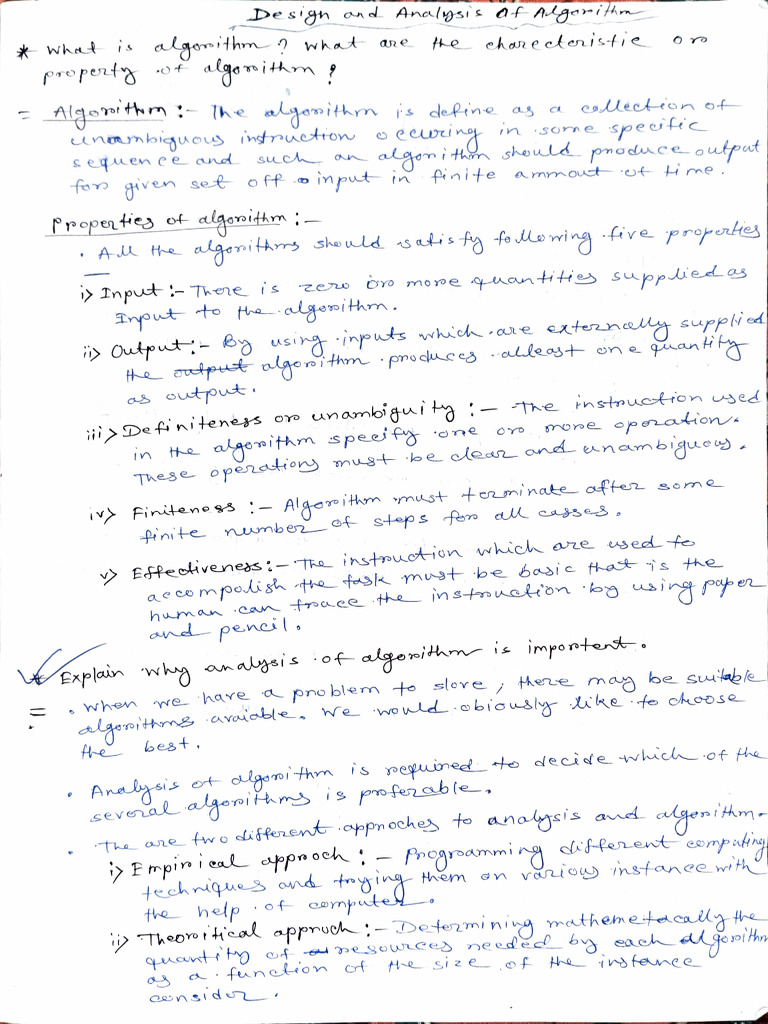 Design and Analysis Of Algorithm
* What is algorithm? What are the charecteristic or
property of algorithm?
= Algorithm :- The algorithm is define as a collection of
unambiguous instruction occuring in some specific
sequence and such an algorithm should produce output
for given set off input in finite ammout of time.
Properties of algorithm :-
• All the algorithms should satisfy following five properties
i> Input :- There is zero or more quantities supplied as
Input to the algorithm.
ii> Output :- By using inputs which are externally supplied
the output algorithm produces atleast one quantity
as output.
iii> Definiteness or unambiguity :- The instruction used
in the algorithm specify one or more opration.
These operations must be clear and unambiguous.
iv> Finiteness :- Algorithm must terminate after some
finite number of steps for all casses.
v> Effectiveness :- The instruction which are used to
accompolish the task must be basic that is the
human can trace the instruction by using paper
and pencil.
* Explain why analysis of algorithm is importent.
= • When we have a problem to slove, there may be suitable
algorithms avaiable. We would obiously like to choose
the best.
• Analysis of algorithm is required to decide which of the
several algorithms is preferable.
• The are two different approches to analysis and algorithm.
i> Empirical approch :- Programming different computing
techniques and trying them on various instance with
the help of computer.
ii> Theoritical appruch :- Determining mathemetacally the
quantity of resources needed by each algorithm
as a function of the size of the instance
consider.